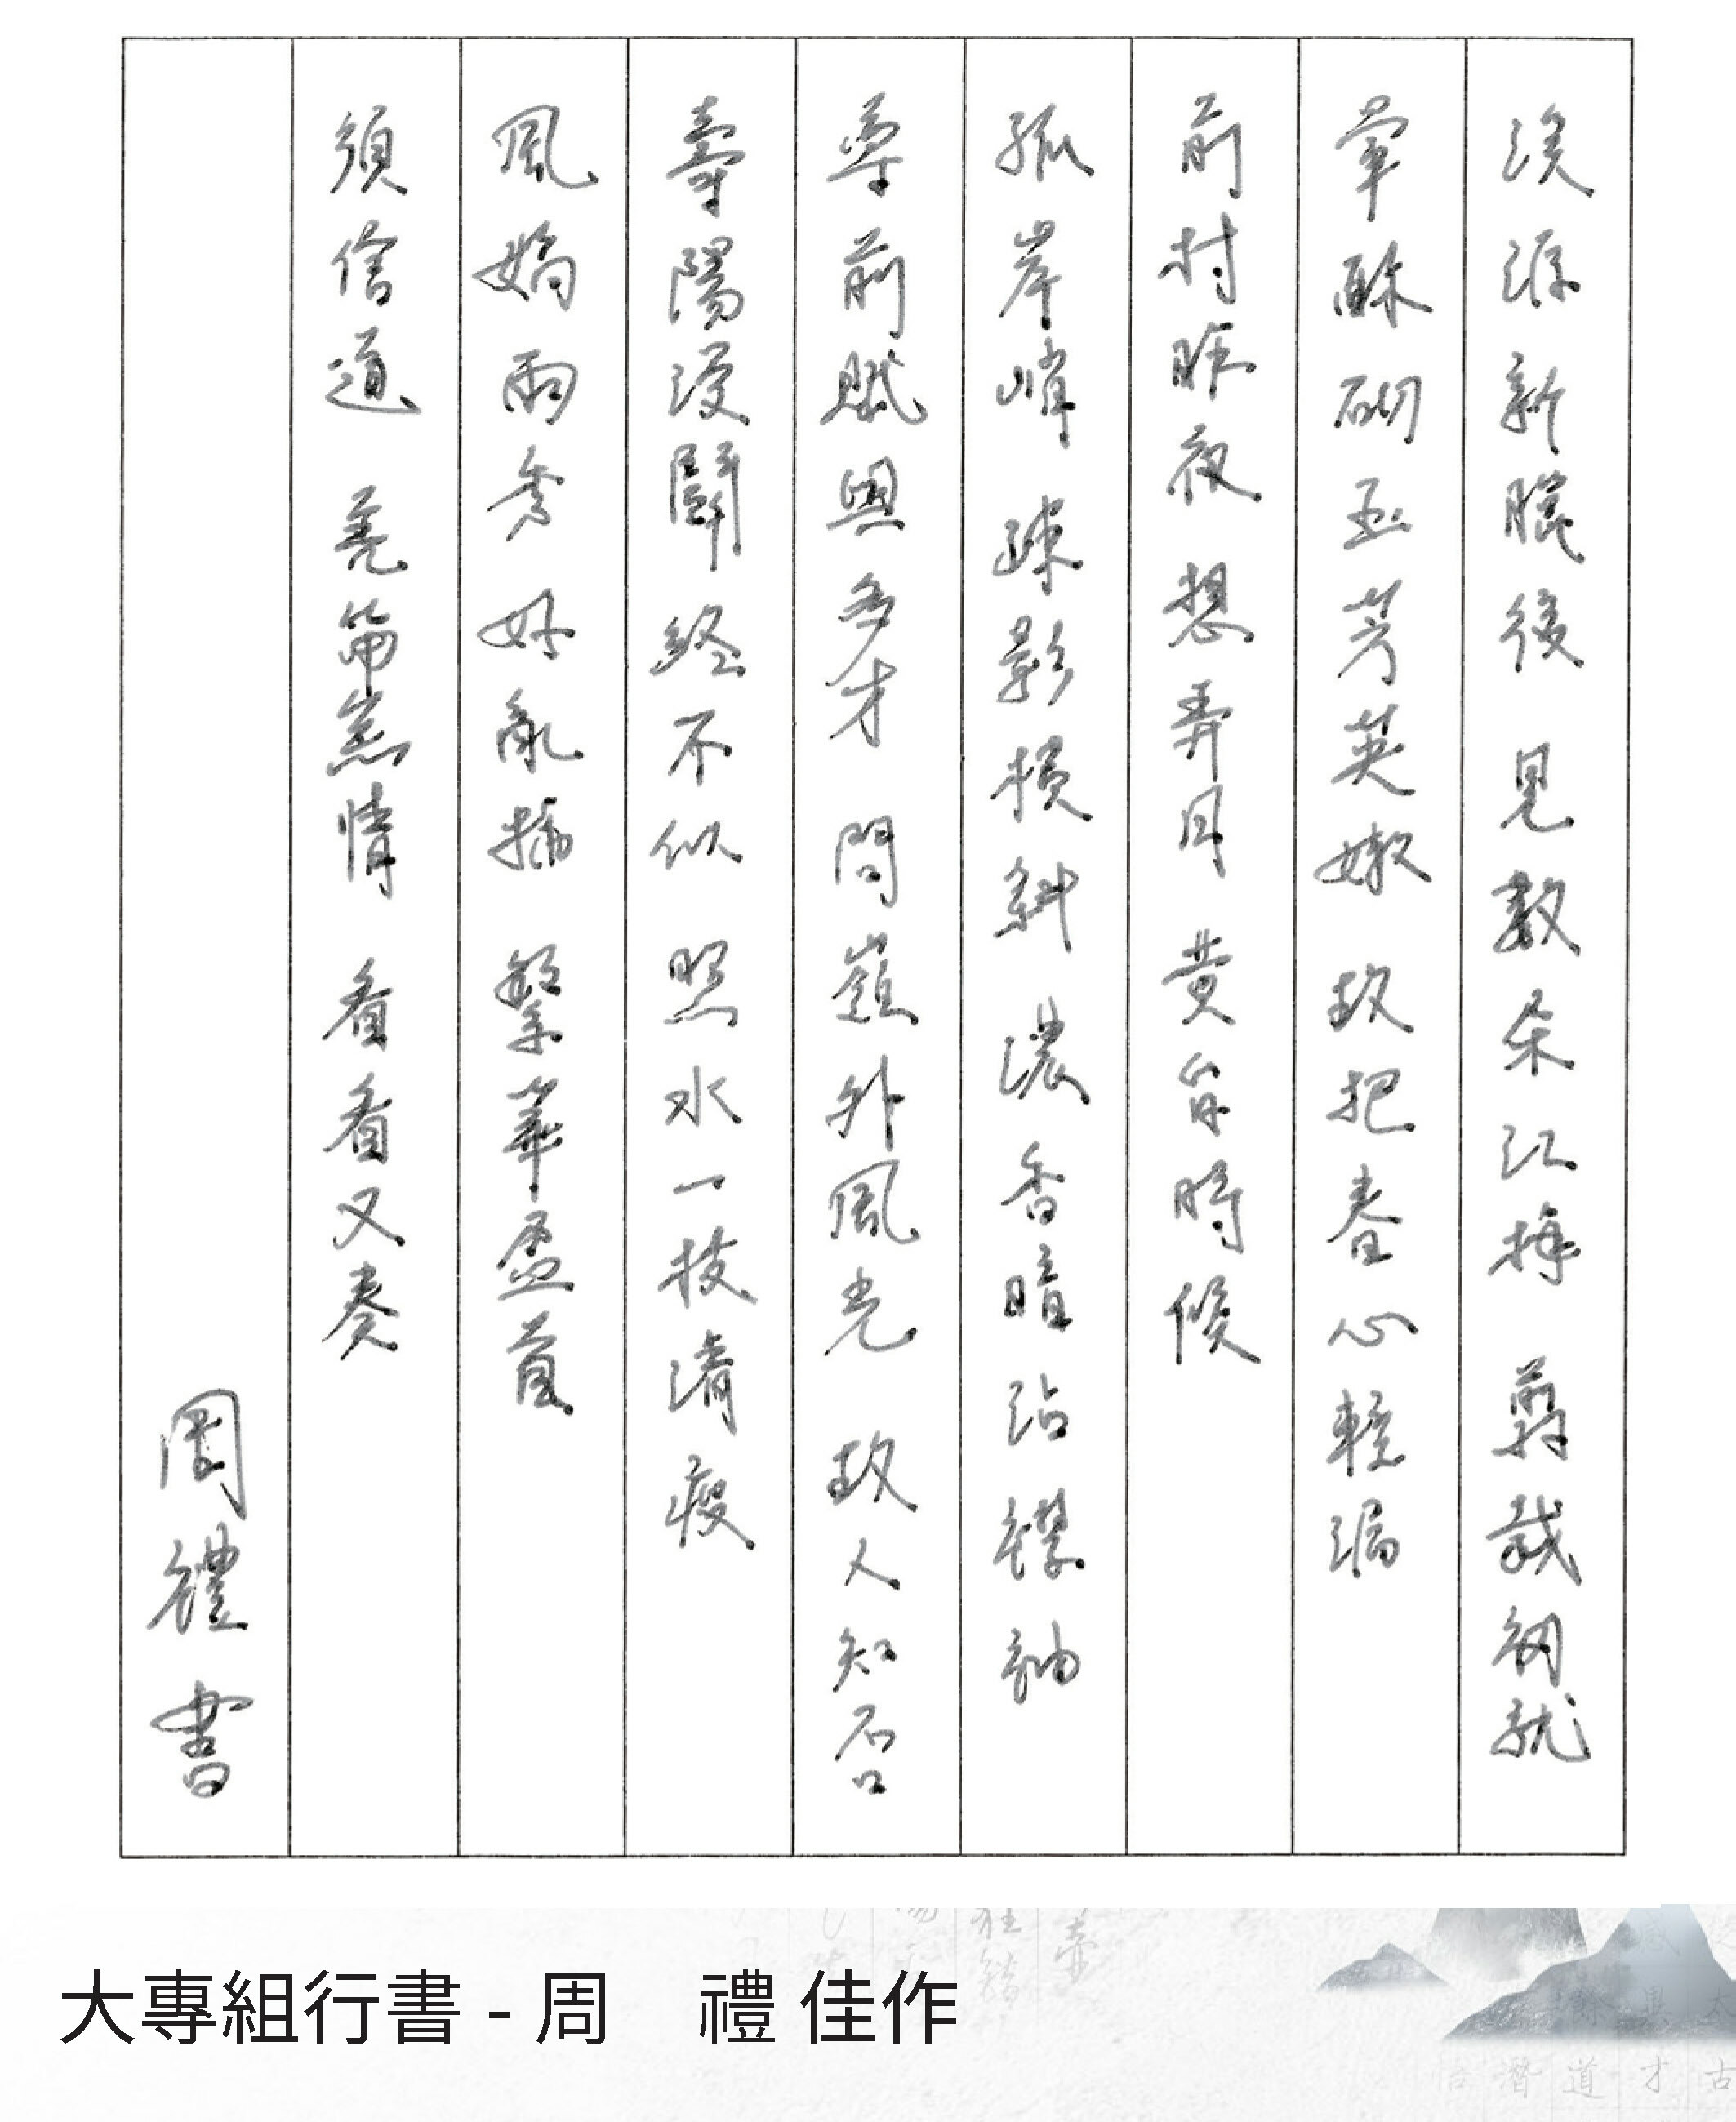 溪源新臘後 見數朵江梅 翦裁初就
暈酥砌玉芳英嫩 故把春心輕漏
前村昨夜 想弄月 黃昏時候
孤岸峭 疎影橫斜 濃香暗沾襟袖
尊前賦與多才 問嶺外風光 故人知否
壽陽漫鬭 終不似照水一枝清瘦
風嬌雨秀 好亂插 繁華盈首
須信道 羌管無情 看看又奏
周禮書
大專組行書 - 周　禮 佳作